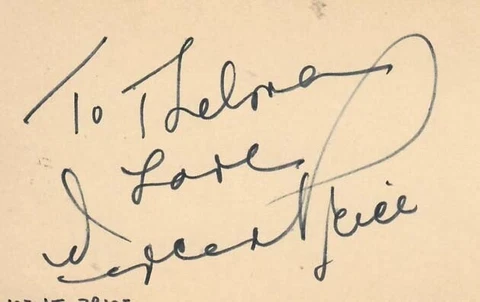 To Thelma
Love
Vincent Price